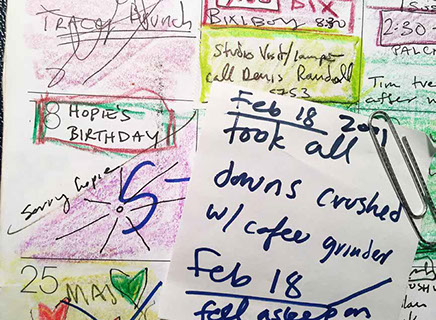 TRACey Brunch
BIX
BIXLBOY 8:30
Studio Visit/
call Denis Randall
2:30
Tim
8 HOPIE'S
BIRTHDAY
Sorry hopie
5-
25
MAJ
Feb 18 2001
took all
downs crushed
w/ cofee grinder
Feb 18
fell asleep on